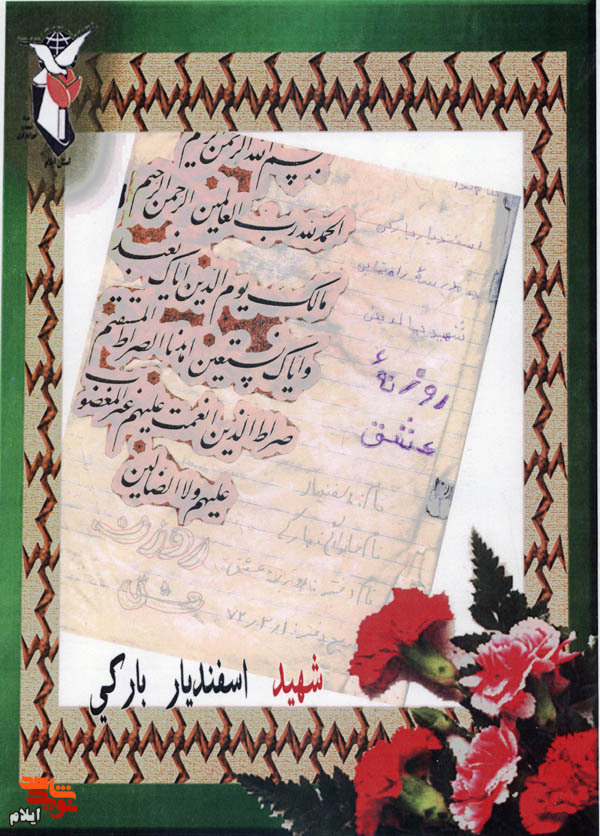 استان ایلام
بسم الله الرحمن الرحیم
الحمد لله رب العالمین الرحمن الرحیم
مالک یوم الدین ایاک نعبد
وایاک نستعین اهدنا الصراط المستقیم
صراط الذین انعمت علیهم غیر المغضوب
علیهم ولا الضالین
اسفندیار بارکی
مدرسهٔ راهنمایی
شهید
روزنهٔ
عشق
نام: اسفندیار
نام خانوادگی: بارکی
نام دفتر: روزنه عشق
روزنه
عشق
شهید اسفندیار بارکي
نوید شاهد
ایلام